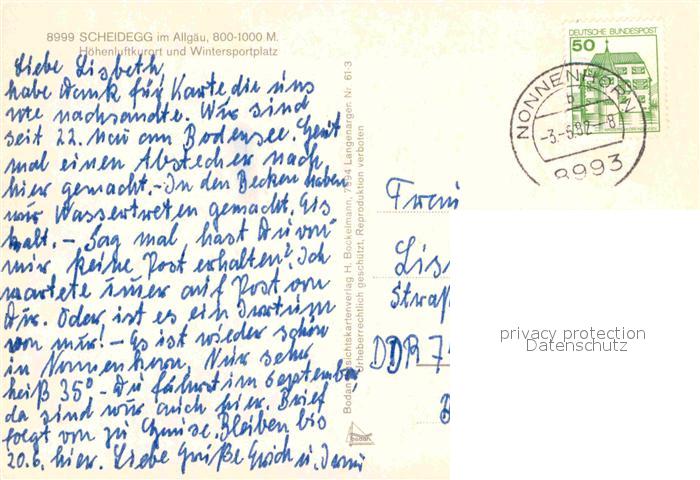 8999 SCHEIDEGG im Allgäu, 800-1000 M.
Höhenluftkurort und Wintersportplatz
Liebe Lisbeth,
habe Dank für Karte die uns
nachsandte. Wir sind
seit 22. Mai am Bodensee.
mal einen Abstecher nach
hier gemacht. - In den Becken haben
wir Wassertreten gemacht. Eis
kalt. - Sag mal, hast Du von
mir keine Post erhalten? Ich
wartete immer auf Post von
Dir. Oder ist es ein Irrtum
von mir! - Es ist wieder schön
in Nonnenhorn. Nur sehr
heiß 35° - Du fährst im September,
da sind wir auch hier. Brief
folgt von zu Hause. Bleiben bis
20.6. hier. Liebe Grüße Erich u.
Bodan-Ansichtskartenverlag H. Bockelmann, 7994 Langenargen. Nr. 61-3
Urheberrechtlich geschützt, Reproduktion verboten
bodan
DEUTSCHE BUNDESPOST
50
NONNENHORN
b
-3.-6.82-8
8993
Lis
Straß
DDR 7
privacy protection
Datenschutz